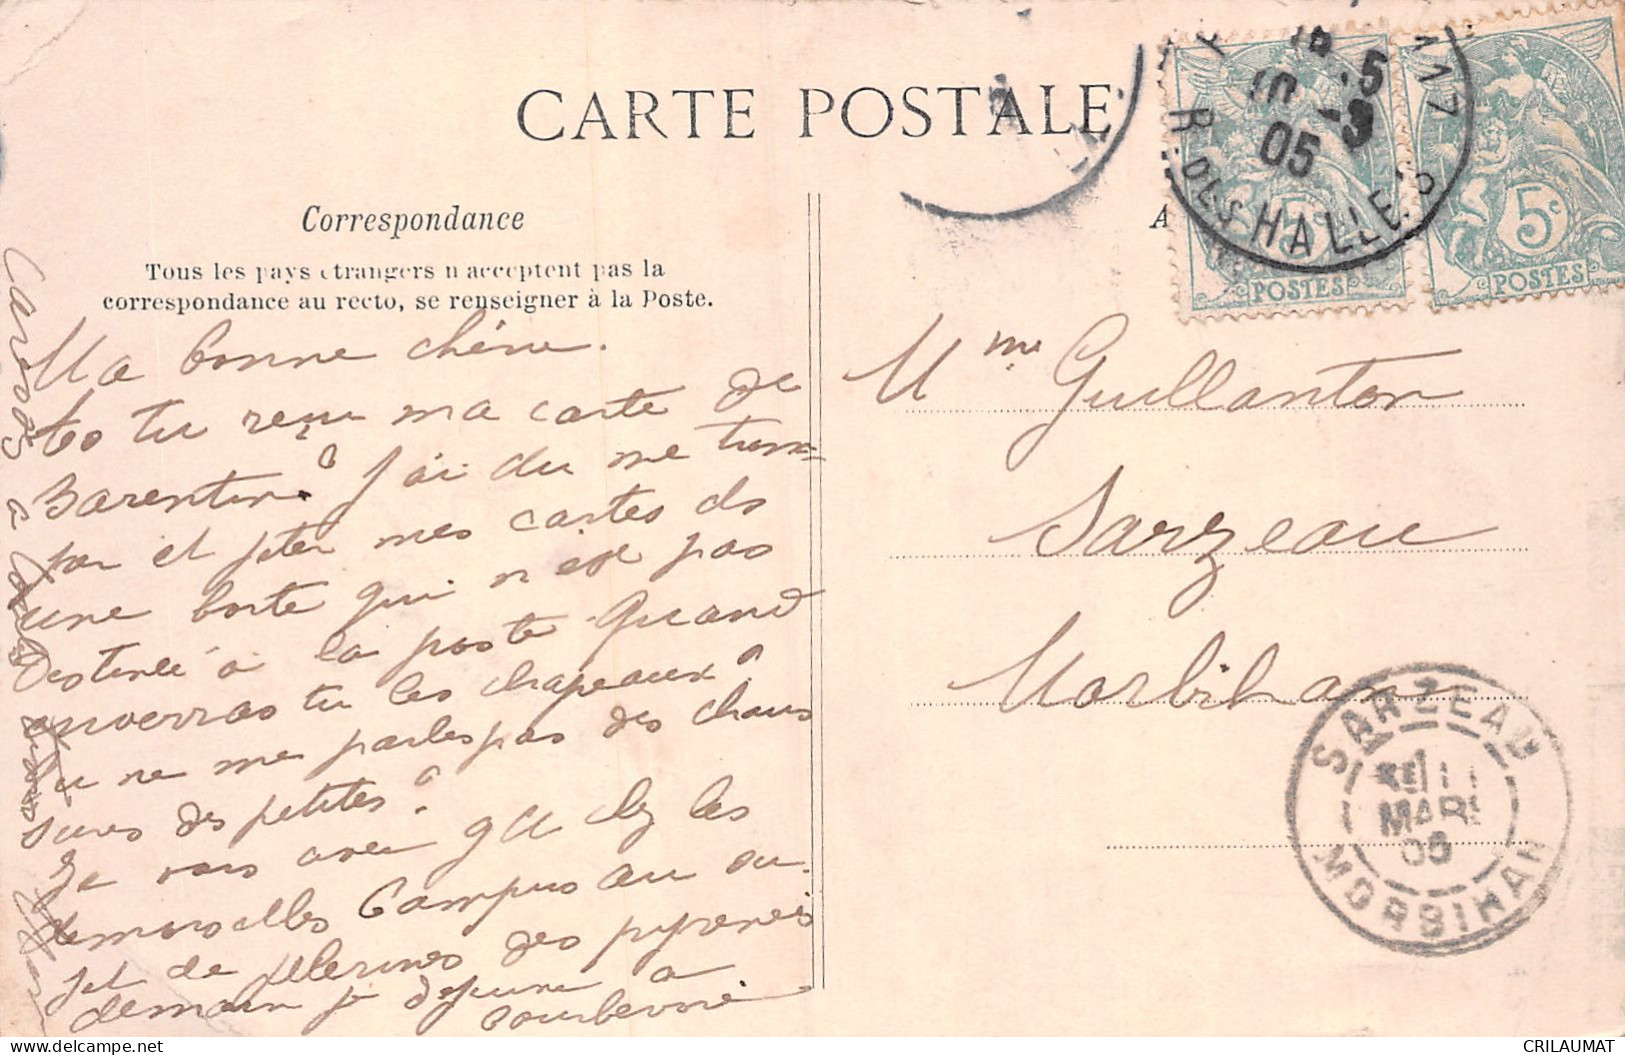 CARTE POSTALE
Correspondance
Tous les pays étrangers n'acceptent pas la
correspondance au recto, se renseigner à la Poste.
Ma bonne chérie.
as tu reçu ma carte de
Barentin? J'ai du me trom-
per et jeter mes cartes ds
une boite qui n'est pas
destinée à la poste Quand
enverras tu les chapeaux?
tu ne me parles pas des chaus
sures des petites?
Je vais avec chez les
demoiselles Campus au su-
jet de pélerines des pyrenées
demain je déjeune à
Courbevoie
Caresses a
A
Mme Guillanton
Sarzeau
Morbihan
R. DES HALLES
10 -3
05
5c
POSTES
5c
POSTES
SARZEAU
11
MARS
05
MORBIHAN
CRILAUMAT